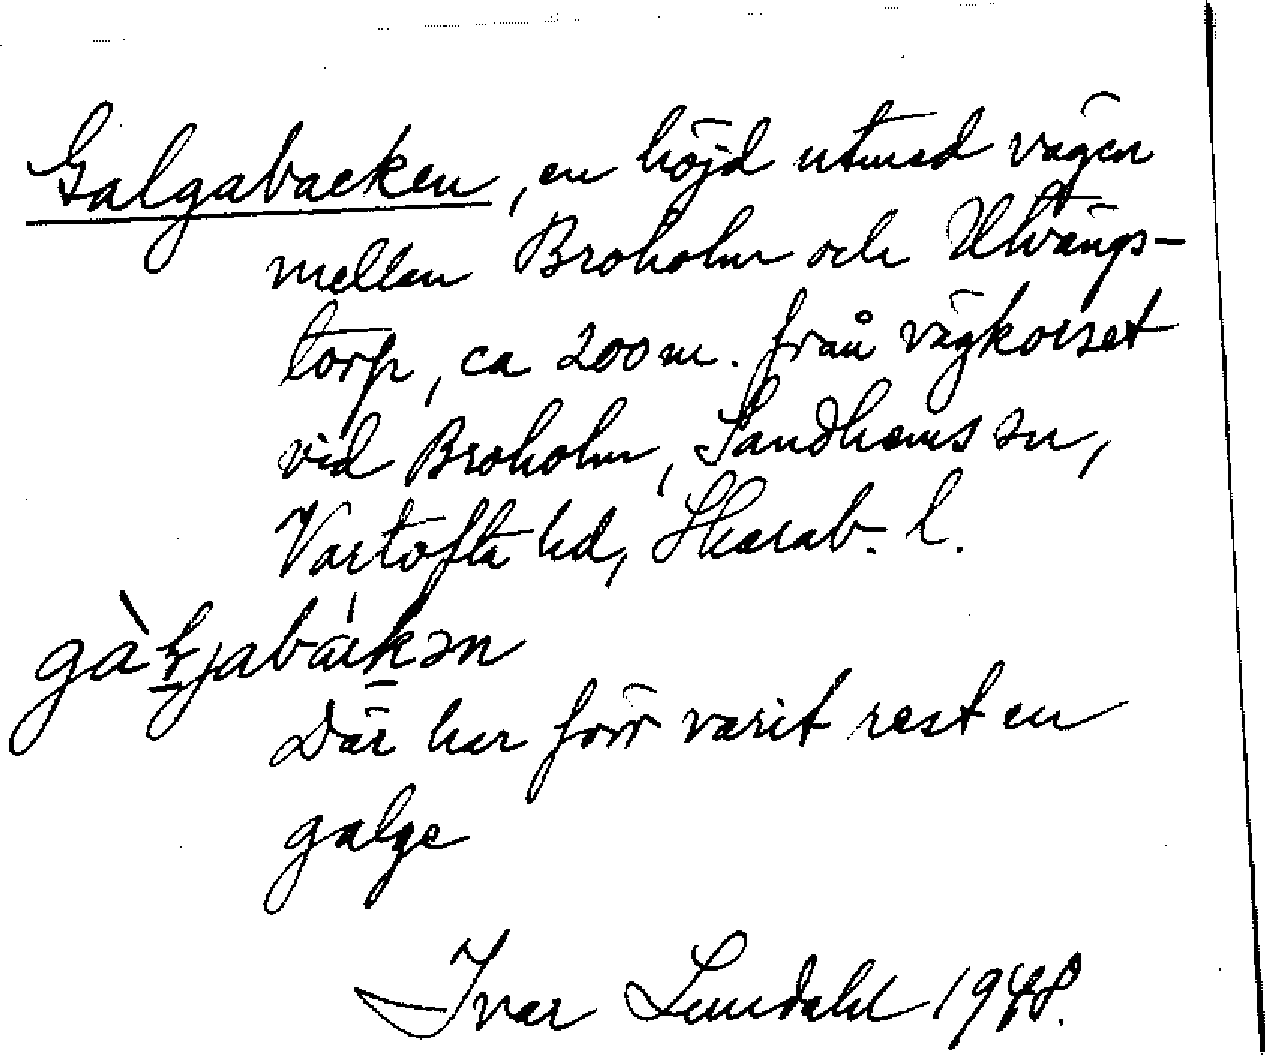 Galgabacken, en höjd utmed vägen
mellan Broholm och Utvängs-
torp, ca 200 m. från vägkorset
vid Broholm, Sandhems sn,
Vartofta hd, Skarab. l.
Där har förr varit rest en
galge
Ivar Lundahl 1948.